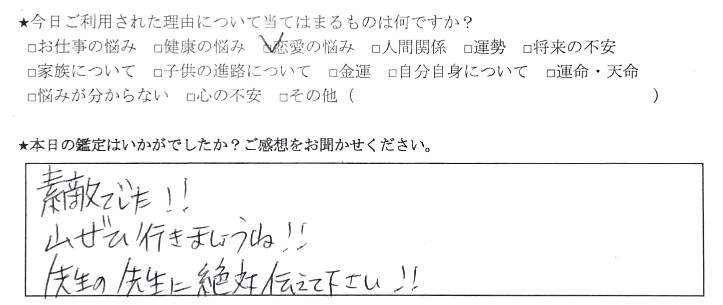 ★今日ご利用された理由について当てはまるものは何ですか？
□お仕事の悩み □健康の悩み ☑恋愛の悩み □人間関係 □運勢 □将来の不安
□家族について □子供の進路について □金運 □自分自身について □運命・天命
□悩みが分からない □心の不安 □その他（ ）
★本日の鑑定はいかがでしたか？ご感想をお聞かせください。
素敵でした!!
山ぜひ行きましょうね!!
先生の先生に絶対伝えて下さい!!